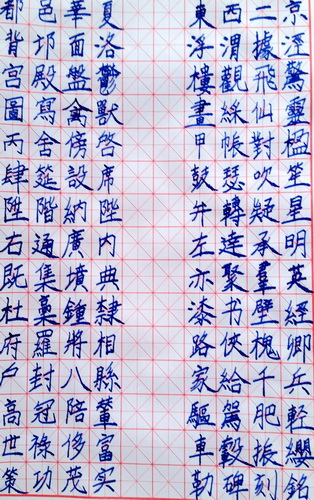 都邑華夏 東西二京
背邙面洛 浮渭據涇
宮殿盤鬱 樓觀飛驚
圖寫禽獸 畫綵仙靈
丙舍傍啓 甲帳對楹
肆筵設席 鼓瑟吹笙
陞階納陛 弁轉疑星
右通廣内 左達承明
既集墳典 亦聚羣英
杜藁鐘隸 漆书壁經
府羅將相 路俠槐卿
户封八縣 家給千兵
高冠陪輦 驅駕肥輕
世祿侈富 車轂振纓
策功茂实 勒碑刻銘